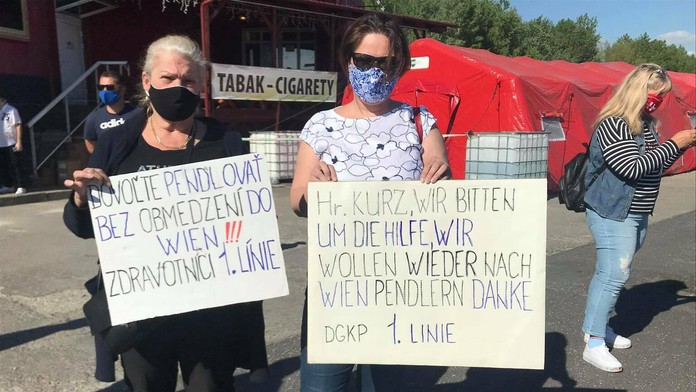 TABAK - CIGARETY
DOVOĽTE PENDLOVAŤ
BEZ OBMEDZENÍ DO
WIEN !!!
ZDRAVOTNÍCI 1. LÍNIE
Hr. KURZ, WIR BITTEN
UM DIE HILFE, WIR
WOLLEN WIEDER NACH
WIEN PENDLERN DANKE
DGKP 1. LINIE